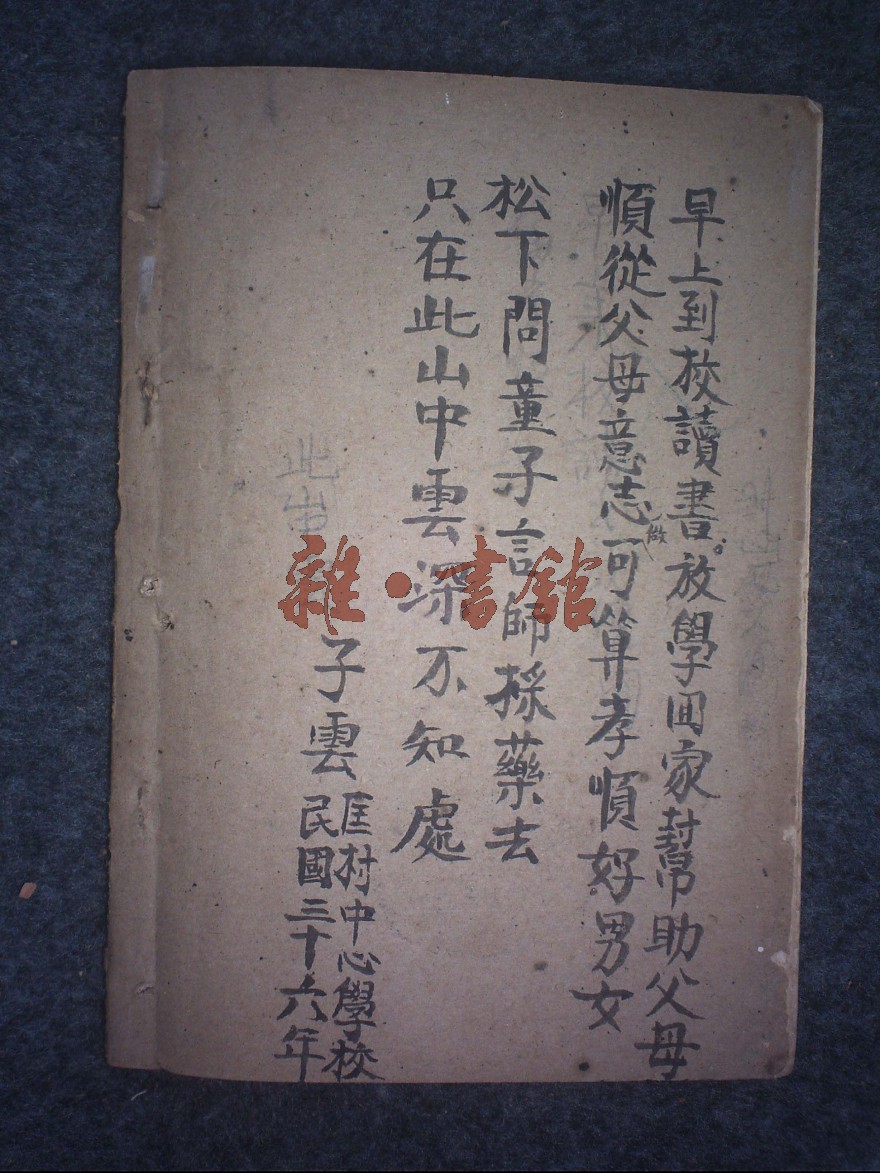 早上到校讀書。放學回家幫助父母
順從父母意志做可算孝順好男女
松下問童子言師採藥去
只在此山中雲深不知處
子雲
匡村中心學校
民國三十六年
此山
雜·書館